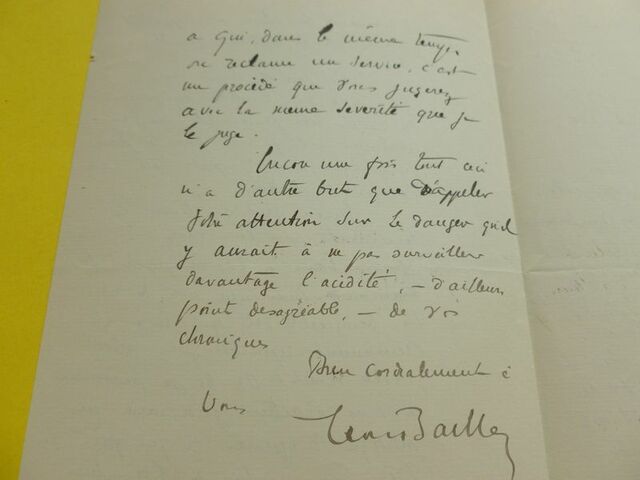 a qui, dans le même temps,
on réclame un service, c'est
un procédé que vous jugerez
avec la même sévérité que je
le juge.
Encore une fois tout ceci
n'a d'autre but que d'appeler
votre attention sur le danger qu'il
y aurait à ne pas surveiller
davantage l'acidité, – d'ailleurs
point désagréable, – de vos
chroniques
Bien cordialement à
vous